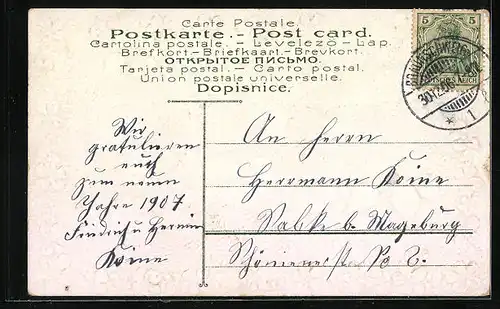 Carte Postale.
Postkarte.- Post card.
Cartolina postale. - Levelező - Lap.
Brefkort.- Briefkaart.- Brevkort.
ОТКРЫТОЕ ПИСЬМО.
Tarjeta postal. - Carto postal.
Union postale universelle.
Dopisnice.
5 5
REICH
30.12.06
* 1
Wir
gratulieren
euch
zum neuen
Jahre 1907
Friedrich u Hermin
Koine
An Herrn
Herrmann Koine
Salbke b. Mageburg